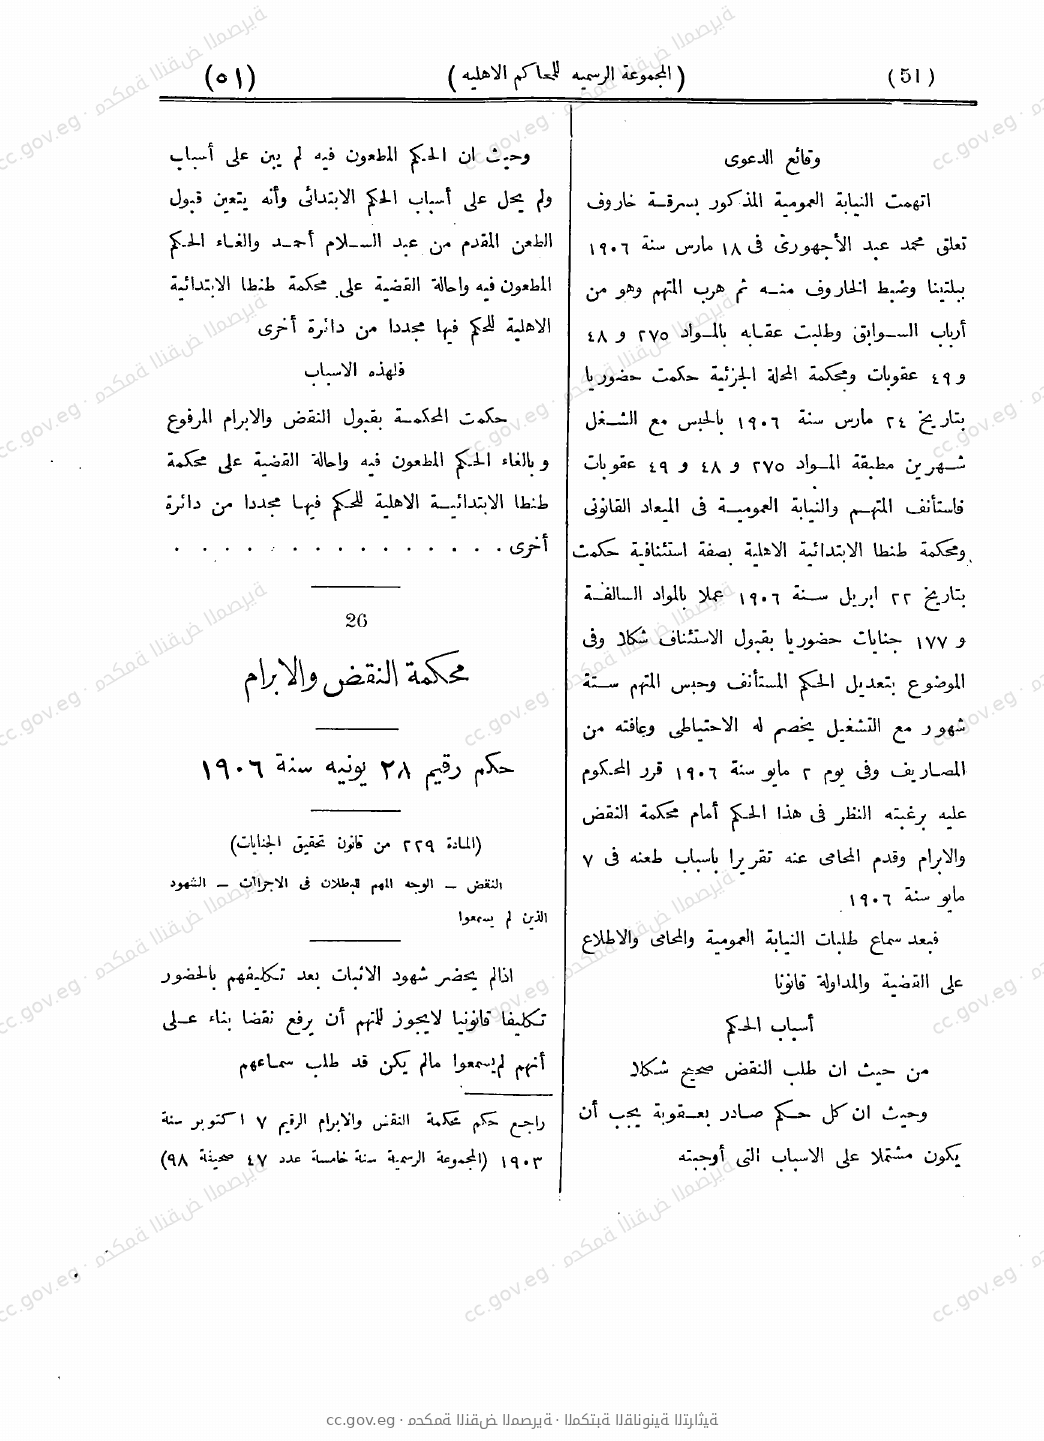 (51) (المجموعة الرسميه للمحاكم الاهليه) (٥١)
وقائع الدعوى
اتهمت النيابة العمومية المذكور بسرقة خاروف
تعلق محمد عبد الأجهورى فى ١٨ مارس سنة ١٩٠٦
ببلتينا وضبط الخاروف منه ثم هرب المتهم وهو من
أرباب السوابق وطلبت عقابه بالمواد ٢٧٥ و ٤٨
و ٤٩ عقوبات ومحكمة المحلة الجزئية حكمت حضوريا
بتاريخ ٢٤ مارس سنة ١٩٠٦ بالحبس مع الشغل
شهرين مطبقة المواد ٢٧٥ و ٤٨ و ٤٩ عقوبات
فاستأنف المتهم والنيابة العمومية فى الميعاد القانونى
ومحكمة طنطا الابتدائية الاهلية بصفة استئنافية حكمت
بتاريخ ٢٢ ابريل سنة ١٩٠٦ عملا بالمواد السالفة
و ١٧٧ جنايات حضوريا بقبول الاستئناف شكلا وفى
الموضوع بتعديل الحكم المستأنف وحبس المتهم ستة
شهور مع التشغيل يخصم له الاحتياطى وعافته من
المصاريف وفى يوم ٢ مايو سنة ١٩٠٦ قرر المحكوم
عليه برغبته النظر فى هذا الحكم أمام محكمة النقض
والابرام وقدم المحامى عنه تقريرا باسباب طعنه فى ٧
مايو سنة ١٩٠٦
فبعد سماع طلبات النيابة العمومية والمحامى والاطلاع
على القضية والمداولة قانونا
أسباب الحكم
من حيث ان طلب النقض صحيح شكلا
وحيث ان كل حكم صادر بعقوبة يجب أن
يكون مشتملا على الاسباب التى أوجبته
وحيث ان الحكم المطعون فيه لم يبن على أسباب
ولم يحل على أسباب الحكم الابتدائى وأنه يتعين قبول
الطعن المقدم من عبد السلام أحمد والغاء الحكم
المطعون فيه واحالة القضية على محكمة طنطا الابتدائية
الاهلية للحكم فيها مجددا من دائرة أخرى
فلهذه الاسباب
حكمت المحكمة بقبول النقض والابرام المرفوع
وبالغاء الحكم المطعون فيه واحالة القضية على محكمة
طنطا الابتدائية الاهلية للحكم فيها مجددا من دائرة
أخرى . . . . . . . . . . . . . . .
26
محكمة النقض والابرام
حكم رقيم ٢٨ يونيه سنة ١٩٠٦
(المادة ٢٢٩ من قانون تحقيق الجنايات)
النقض – الوجه المهم للبطلان فى الاجراآت – الشهود
الذين لم يسمعوا
اذالم يحضر شهود الاثبات بعد تكليفهم بالحضور
تكليفا قانونيا لايجوز للمتهم أن يرفع نقضا بناء على
أنهم لم يسمعوا مالم يكن قد طلب سماعهم
راجع حكم محكمة النقض والابرام الرقيم ٧ اكتوبر سنة
١٩٠٣ (المجموعة الرسمية سنة خامسة عدد ٤٧ صحيفة ٩٨)
cc.gov.eg · محكمة النقض المصرية · المكتبة القانونية التراثية